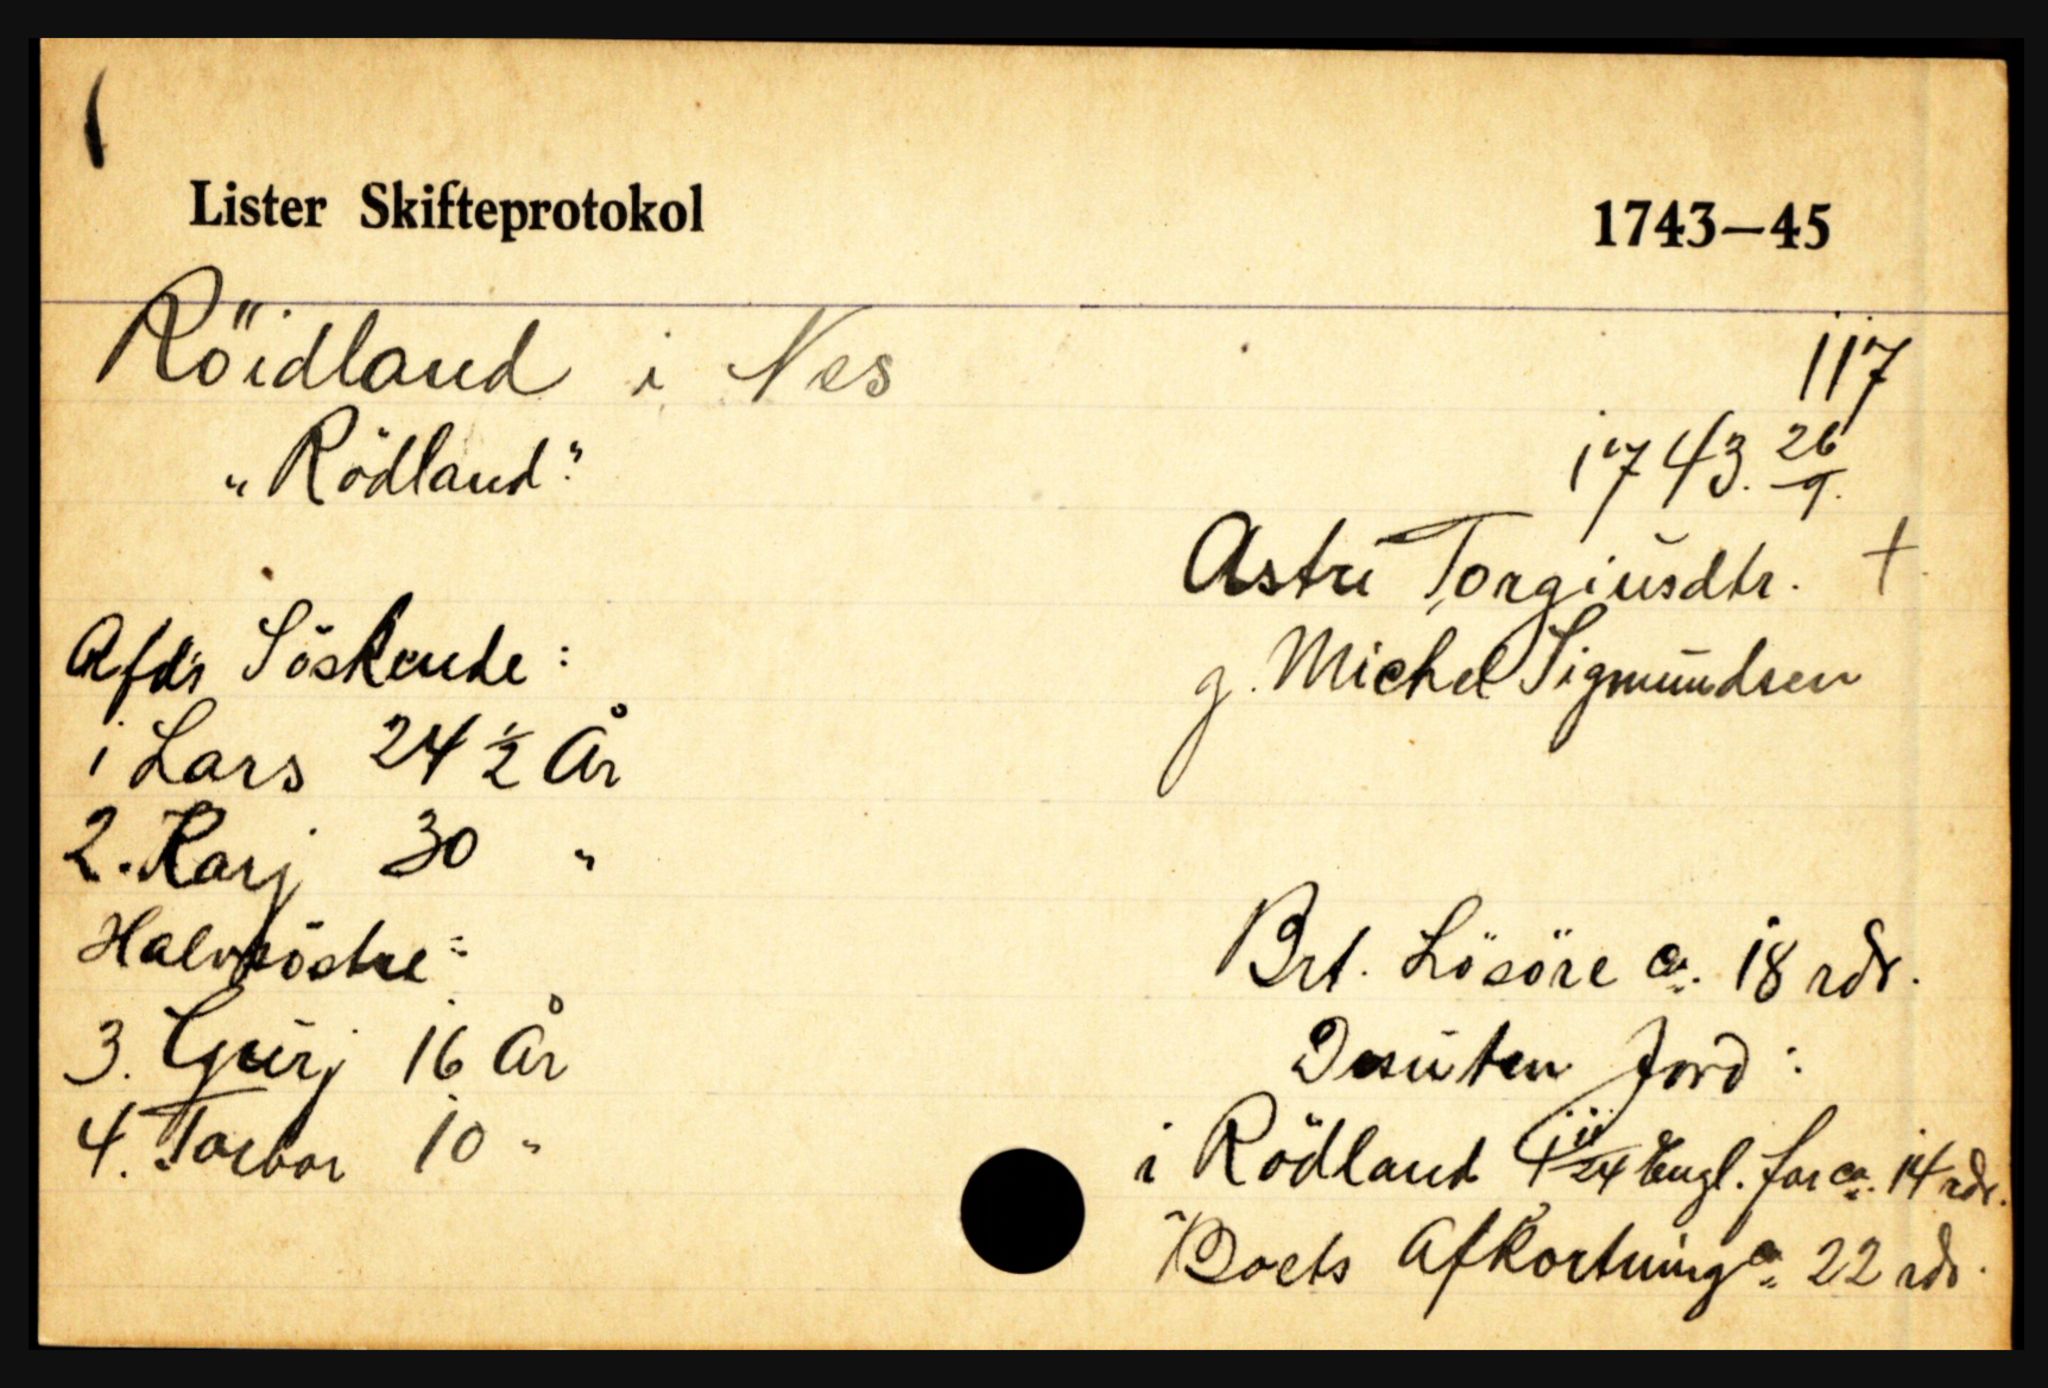 Lister Skifteprotokol 1743–45
Röidland i Nes
117
„Rödland"
1743. 26/9.
Astri Torgiusdtr. +
g. Michel Sigmundsen
Afd's Söskende:
1 Lars 24 1/2 År
2. Karj 30 "
Halvsöstre:
3. Gurj 16 År
4. Torbor 10 "
Brt. Lösöre ca. 18 rdr.
Desuten Jord:
i Rödland 4 11/24 Engl. for ca. 14 rdr.
Boets Afkortning ca. 22 rdr.